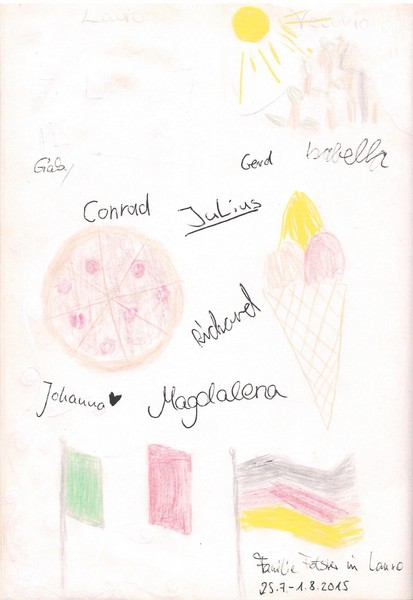 Lauro
Vesuvio
Gaby
Gerd
Isabella
Conrad
Julius
Richard
Johanna
Magdalena
Familie in Lauro
25.7.-1.8.2015